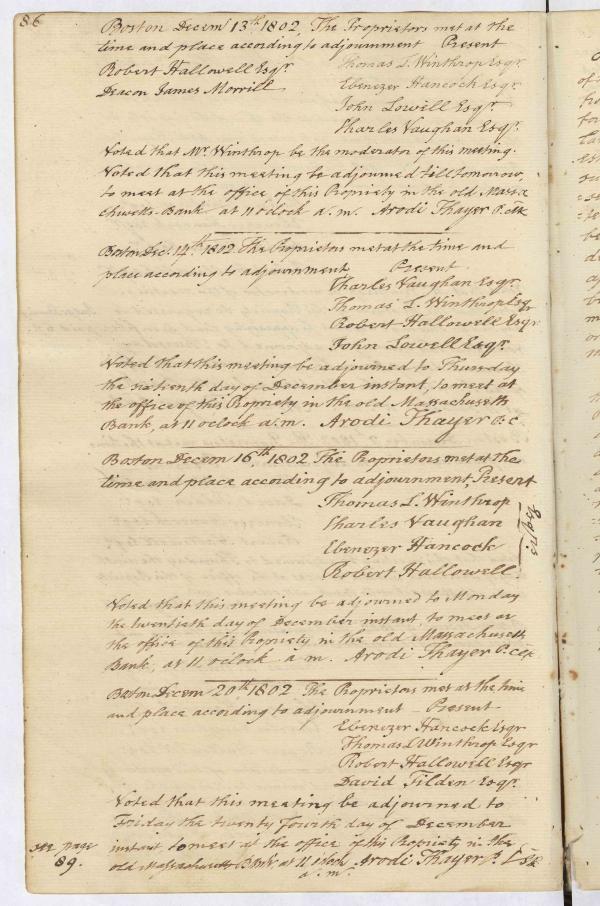 86
Boston Decemr 13th 1802, The Proprietors met at the
time and place according to adjournment Present
Robert Hallowell Esqr. Thomas L. Winthrop Esqr.
Deacon James Morrill Ebenezer Hancock Esqr.
John Lowell Esqr.
Charles Vaughan Esqr.
Voted that Mr. Winthrop be the moderator of this meeting.
Voted that this meeting be adjourned till tomorrow,
to meet at the office of this Propriety in the old Massa
chusetts Bank at 11 oClock a.m. Arodi Thayer P. Clk
Boston Dec. 14th 1802 The Proprietors met at the time and
place according to adjournment Present
Charles Vaughan Esqr.
Thomas L. Winthrop Esqr
Robert Hallowell Esqr
John Lowell Esqr.
Voted that this meeting be adjourned to Thursday
the sixteenth day of December instant, to meet at
the office of this Propriety in the old Massachusetts
Bank, at 11 oclock a.m. Arodi Thayer P: C
Boston Decem 16th 1802 The Proprietors met at the
time and place according to adjournment, Present
Thomas L. Winthrop
Charles Vaughan
Ebenezer Hancock
Robert Hallowell
Esqrs
Voted that this meeting be adjourned to Monday
the twentieth day of December instant to meet at
the office of this Propriety in the old Massachusetts
Bank, at 11 oclock a m. Arodi Thayer P. Clk
Boston Decem 20th 1802 The Proprietors met at the time
and place according to adjournment - Present
Ebenezer Hancock Esqr
Thomas L Winthrop Esqr
Robert Hallowell Esqr
David Tilden Esqr.
Voted that this meeting be adjourned to
Friday the twenty fourth day of December
instant to meet at the office of this Propriety in the
old Massachusetts Bank at 11 oClock Arodi Thayer P. Clk
a.m.
see page
89.